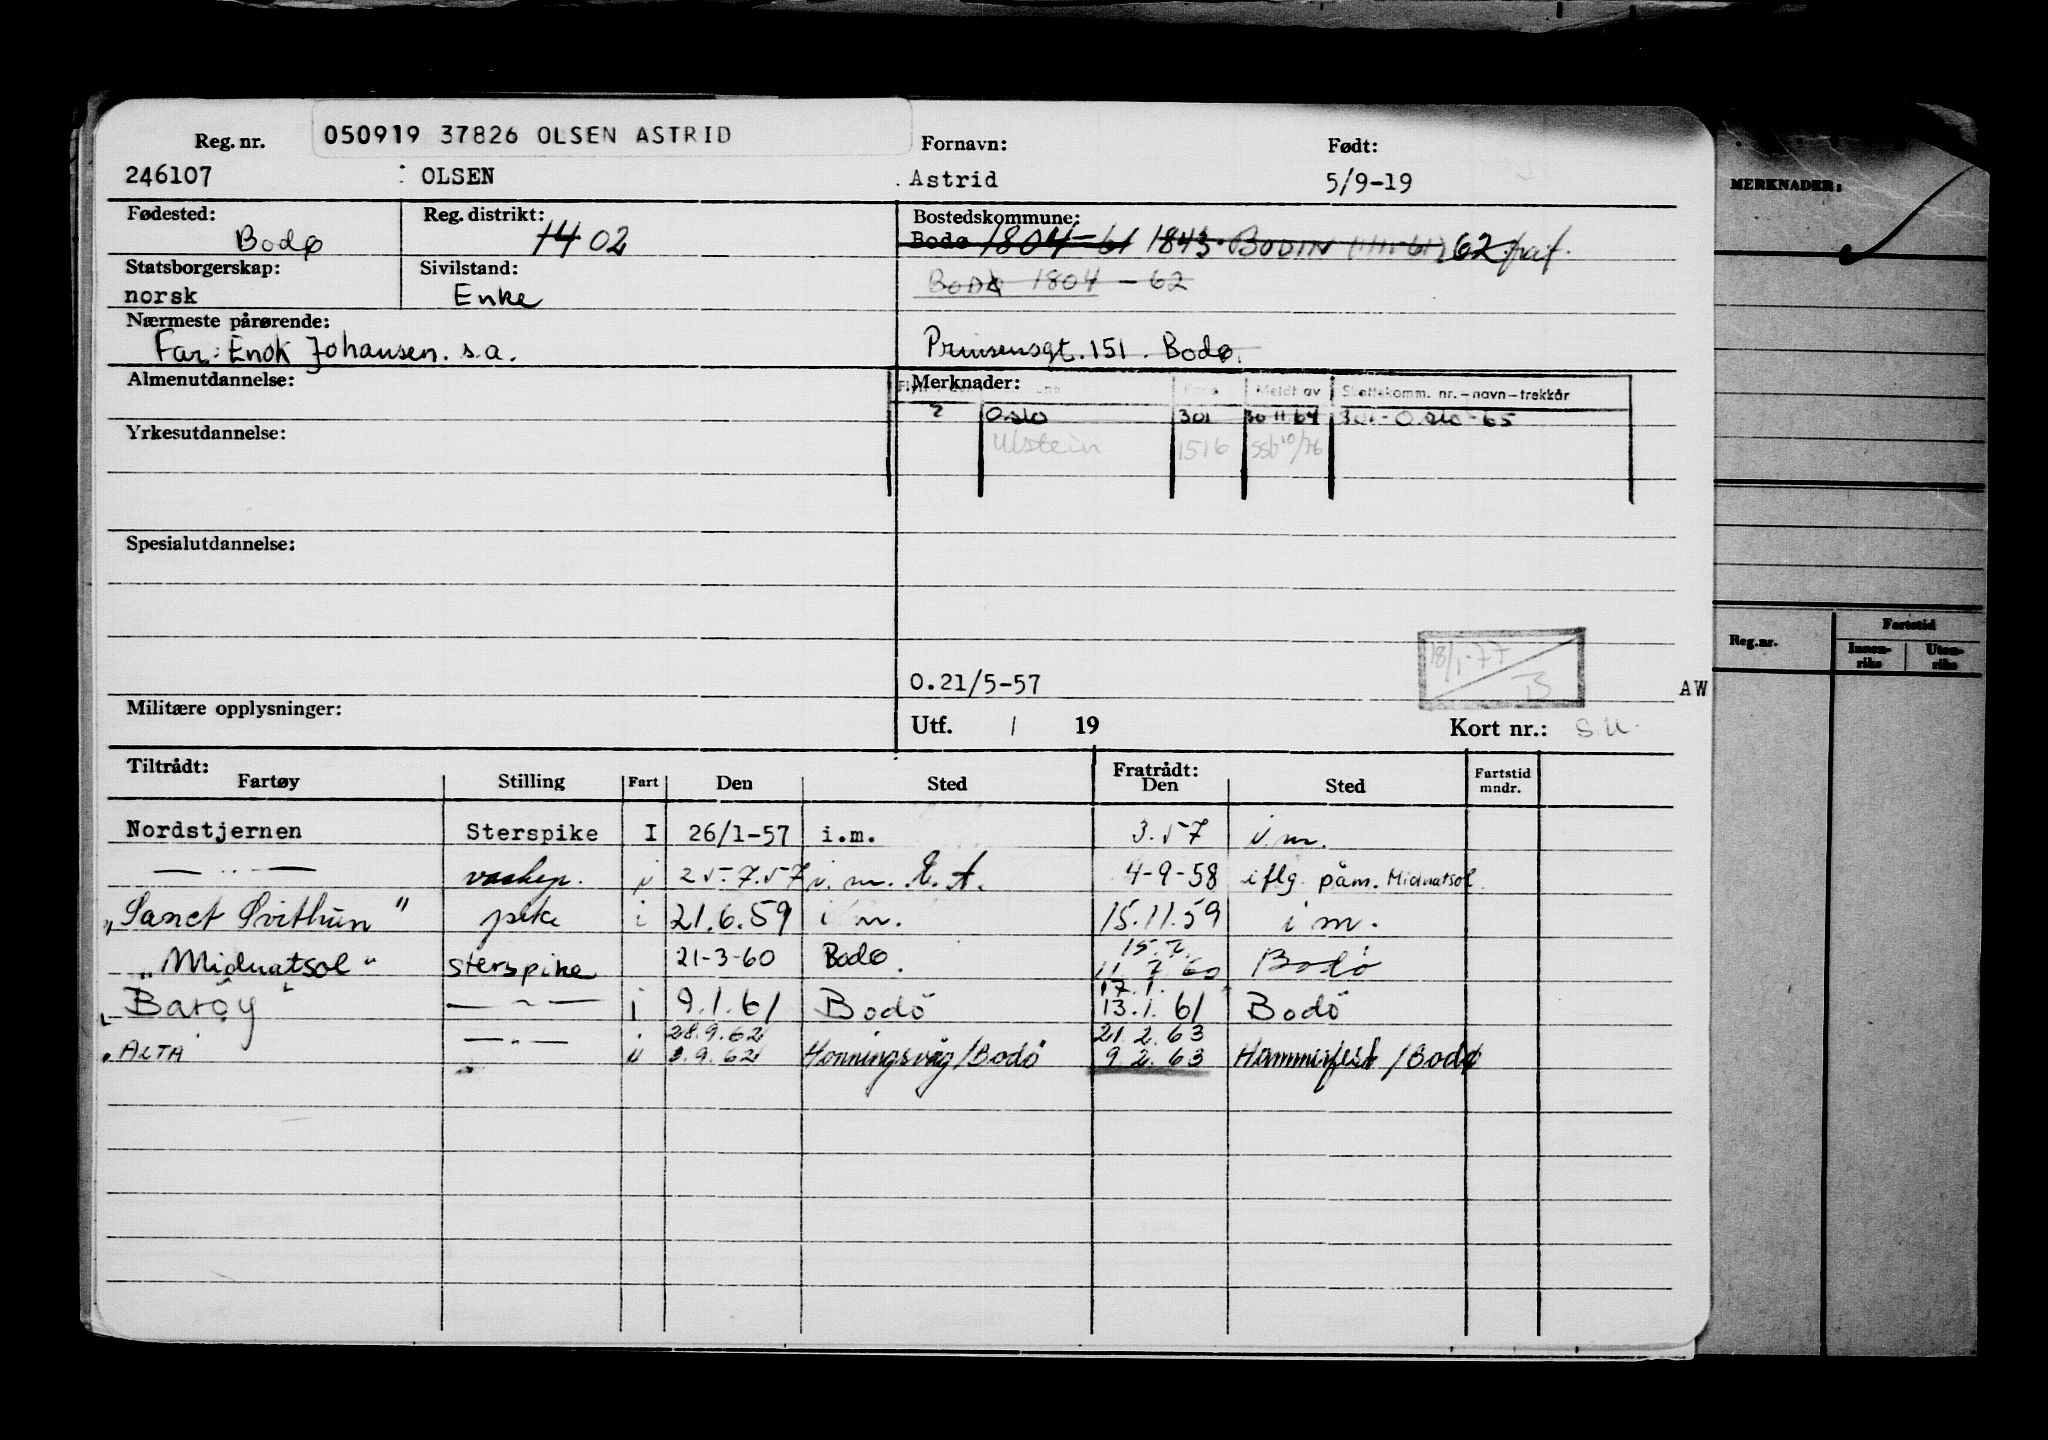 050919 37826 OLSEN ASTRID
Reg. nr. Fornavn: Født:
246107 OLSEN Astrid 5/9-19
Fødested: Reg. distrikt: Bostedskommune:
Bodø 14 02 Bodø 1804-61 1843. BODIN 62
Statsborgerskap: Sivilstand:
norsk Enke Bodø 1804 - 62
Nærmeste pårørende:
Far: Enok Johansen. s.a. Prinsensgt. 151. Bodø.
Almenutdannelse: Merknader: Meldt av Skattekomm. nr.-navn-trekkår
2 Oslo 301 30 11 64 301 - Oslo - 65
Yrkesutdannelse: Ulstein 1516 ssb 10/76
Spesialutdannelse:
18/1-77
O.21/5-57 AW
Militære opplysninger: Utf. / 19 Kort nr.: S U.
Tiltrådt: Fratrådt:
Fartøy Stilling Fart Den Sted Den Sted Fartstid mndr.
Nordstjernen Sterspike I 26/1-57 i.m. 3.57 i.m.
— .. — i 25.7.57 i.m. 4-9-58 iflg. påm. Midnatsol
"Sanct Svithun" pike i 21.6.59 i m. 15.11.59 i m.
15.7.
"Midnatsol" sterspike 21-3-60 Bodø. 11.7.60 Bodø
17.1.
"Barøy" — " — i 9.1.61 Bodö 13.1.61 Bodö
28.9.62 21.2.63
"ALTA — " — i 9.62 Honningsvåg/Bodö 9.2.63 Hammerfest/Bodø
MERKNADER:
Reg.nr. Fartstid
Innen- Uten-
riks riks